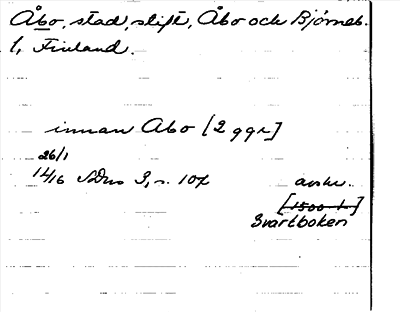 Åbo, stad, stift, Åbo och Björneb.
l, Finland.
innan Åbo [2 ggr]
26/1
1416 SDns 3, s. 107
avskr.
[1500 t.]
Svartboken